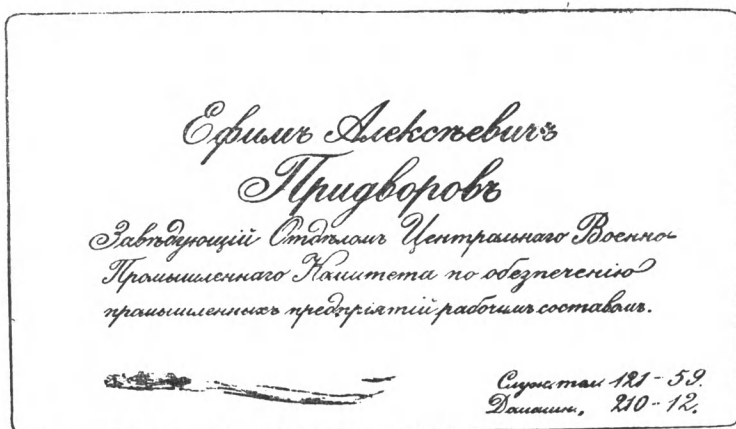 Ефимъ Алексѣевичъ
Придворовъ
Завѣдующій Отдѣломъ Центральнаго Военно-
Промышленнаго Комитета по обезпеченію
промышленныхъ предпріятій рабочимъ составомъ.
Служ. тел. 121-59.
Домашн. 210-12.